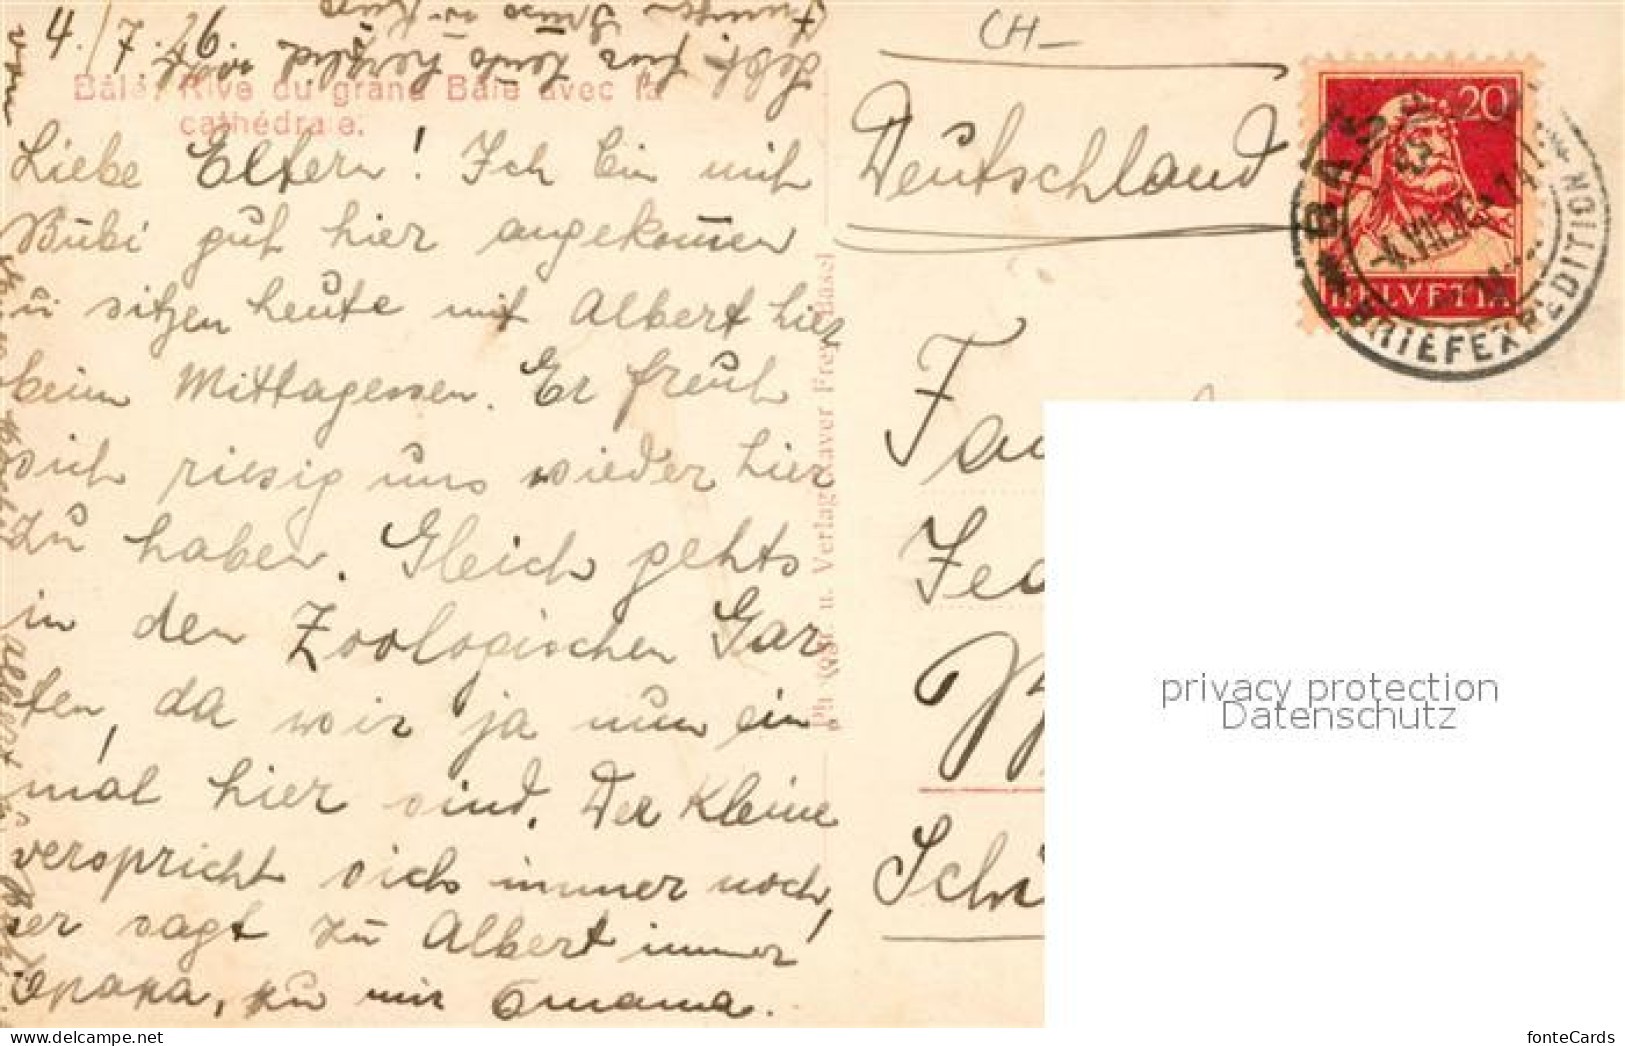 4./7.26.
Bâle. Rive du grand Bâle avec la
cathédrale.
Liebe Eltern! Ich bin mit
Bubi gut hier angekom̅en
u sitzen heute mit Albert hier
beim Mittagessen. Er freut
sich riesig uns wieder hier
zu haben. Gleich gehts
in den Zoologischen Gar
ten, da wir ja nun ein
mal hier sind. Der Kleine
verspricht sich immer noch,
er sagt zu Albert immer
Opapa, zu mir Omama.
vom
Albert u Bubi
Verlag Xaver Frey, Basel
CH-
Deutschland
20
HELVETIA
BASEL
BRIEFEXPEDITION
Fa
Schi
privacy protection
Datenschutz
fonteCards